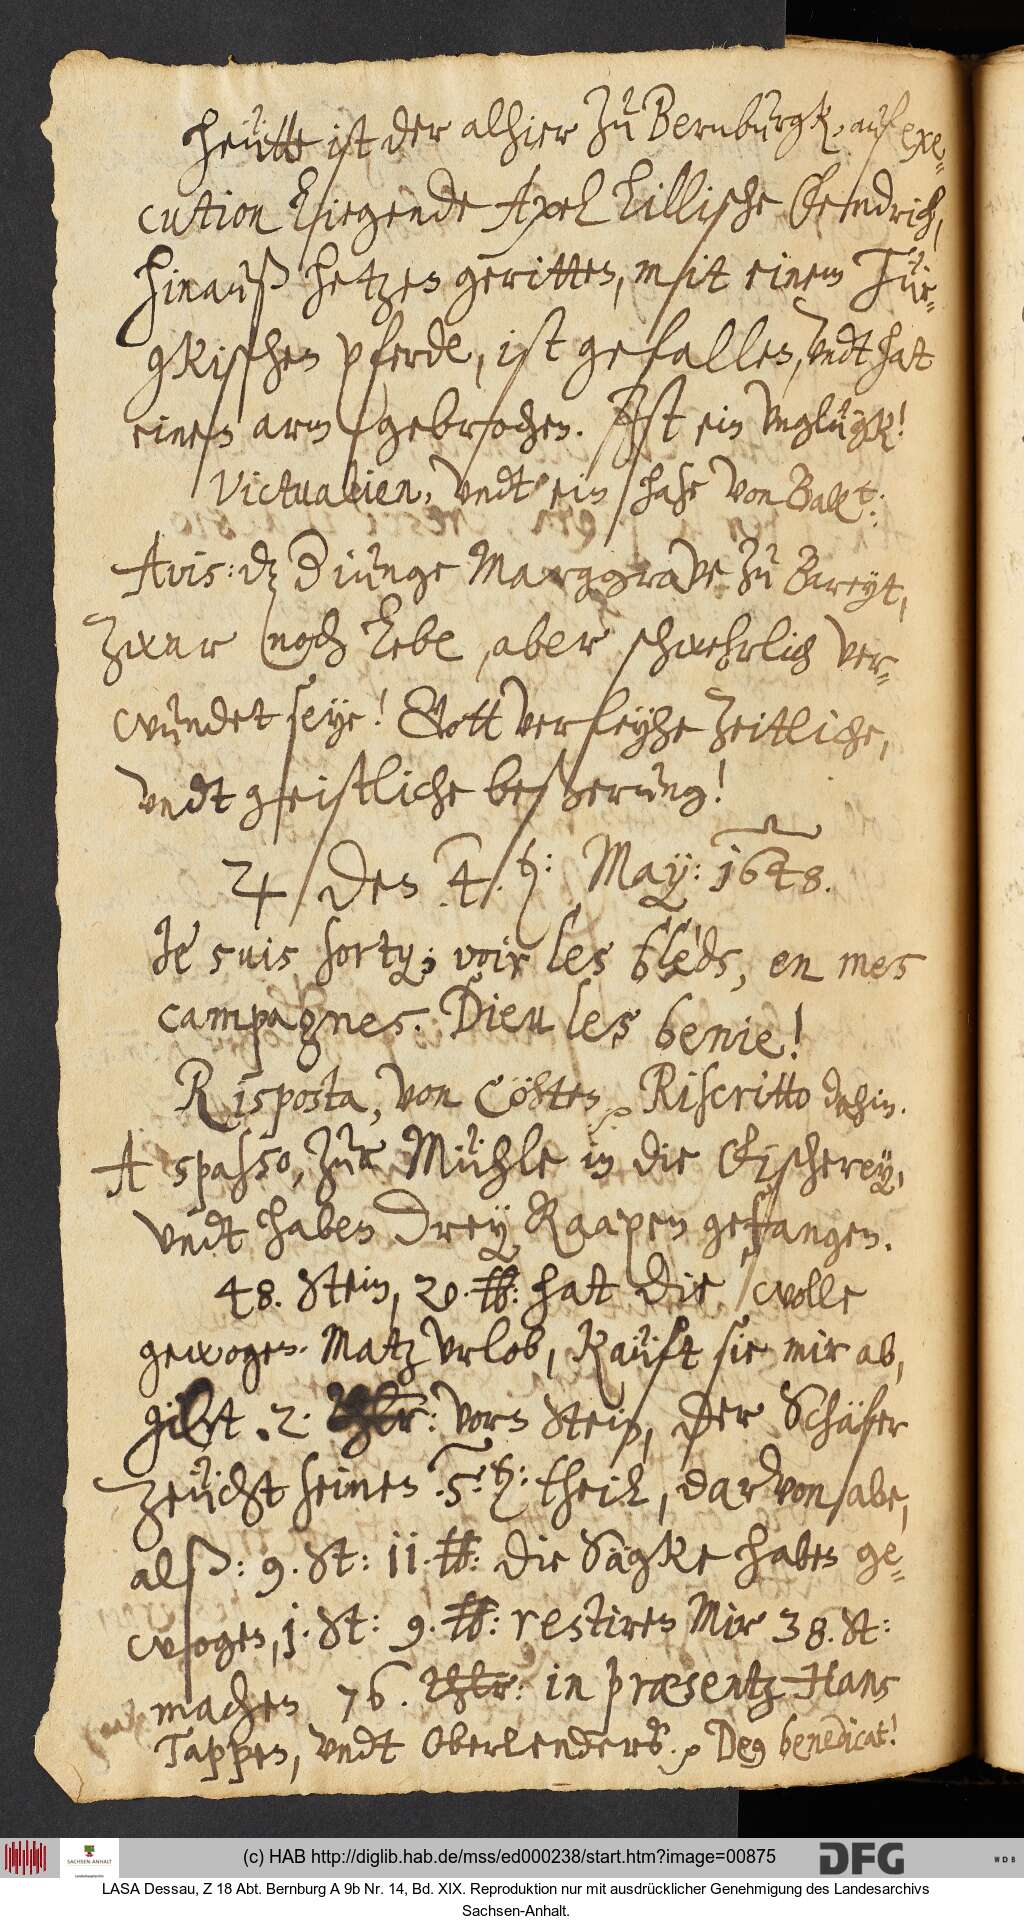 heütte ist der alhier zu Bernburgk, auf exe-
cution liegende Axel Lillische Fendrich,
hinauß hetzen geritten, mit einem Tür-
gkischen pferde, ist gefallen, undt hat
einen arm gebrochen. Ist ein Unglügk!
Victualien, undt ein hase von Ballst:
Avis: dz d iunge Marggrave zu Bareyt,
zwar noch lebe, aber schwehrlich ver-
wundet seye! Gott verleyhe zeitliche,
undt geistliche beßerung!
♃ den .4. h: May: 1648.
Je suis sorty, voir les bléds, en mes
campagnes. Dieu les benie!
Risposta, von Cöhten, Riscritto dahin.
A spasso, zur Mühle in die Fischerey,
undt haben drey Raapen gefangen.
48. Stein, 20. ℔: hat die wolle
gewogen. Matz Urlob, kauft sie mir ab,
gibt .2. Thlr: vorn Stein, der Schäfer
zeücht seinen .5. h: theil, darvon abe,
alß: 9. St: 11. ℔: die Sägke haben ge-
wogen, 1. St: 9. ℔: restiren Mir 38. St:
machen 76. Thlr: in præsentz Hans
Tappen, undt Oberlenders. Deus benedicat!
(c) HAB http://diglib.hab.de/mss/ed000238/start.htm?image=00875
SACHSEN-ANHALT
DFG
WDB
LASA Dessau, Z 18 Abt. Bernburg A 9b Nr. 14, Bd. XIX. Reproduktion nur mit ausdrücklicher Genehmigung des Landesarchivs
Sachsen-Anhalt.